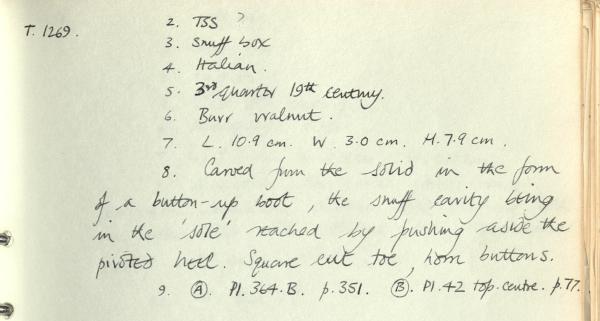 T. 1269. 2. TSS ?
3. Snuff box
4. Italian.
5. 3rd quarter 19th century.
6. Burr walnut.
7. L. 10.9 cm. W. 3.0 cm. H. 7.9 cm.
8. Carved from the solid in the form
of a button-up boot, the snuff cavity being
in the 'sole' reached by pushing aside the
pivoted heel. Square cut toe, horn buttons.
9. (A). Pl. 364.B. p. 351. (B). Pl. 42 top.centre. p. 77.